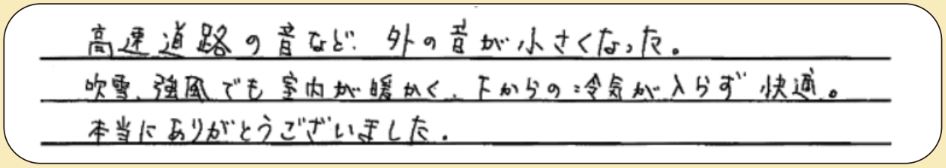 高速道路の音など、外の音が小さくなった。
吹雪、強風でも室内が暖かく、下からの冷気が入らず快適。
本当にありがとうございました。